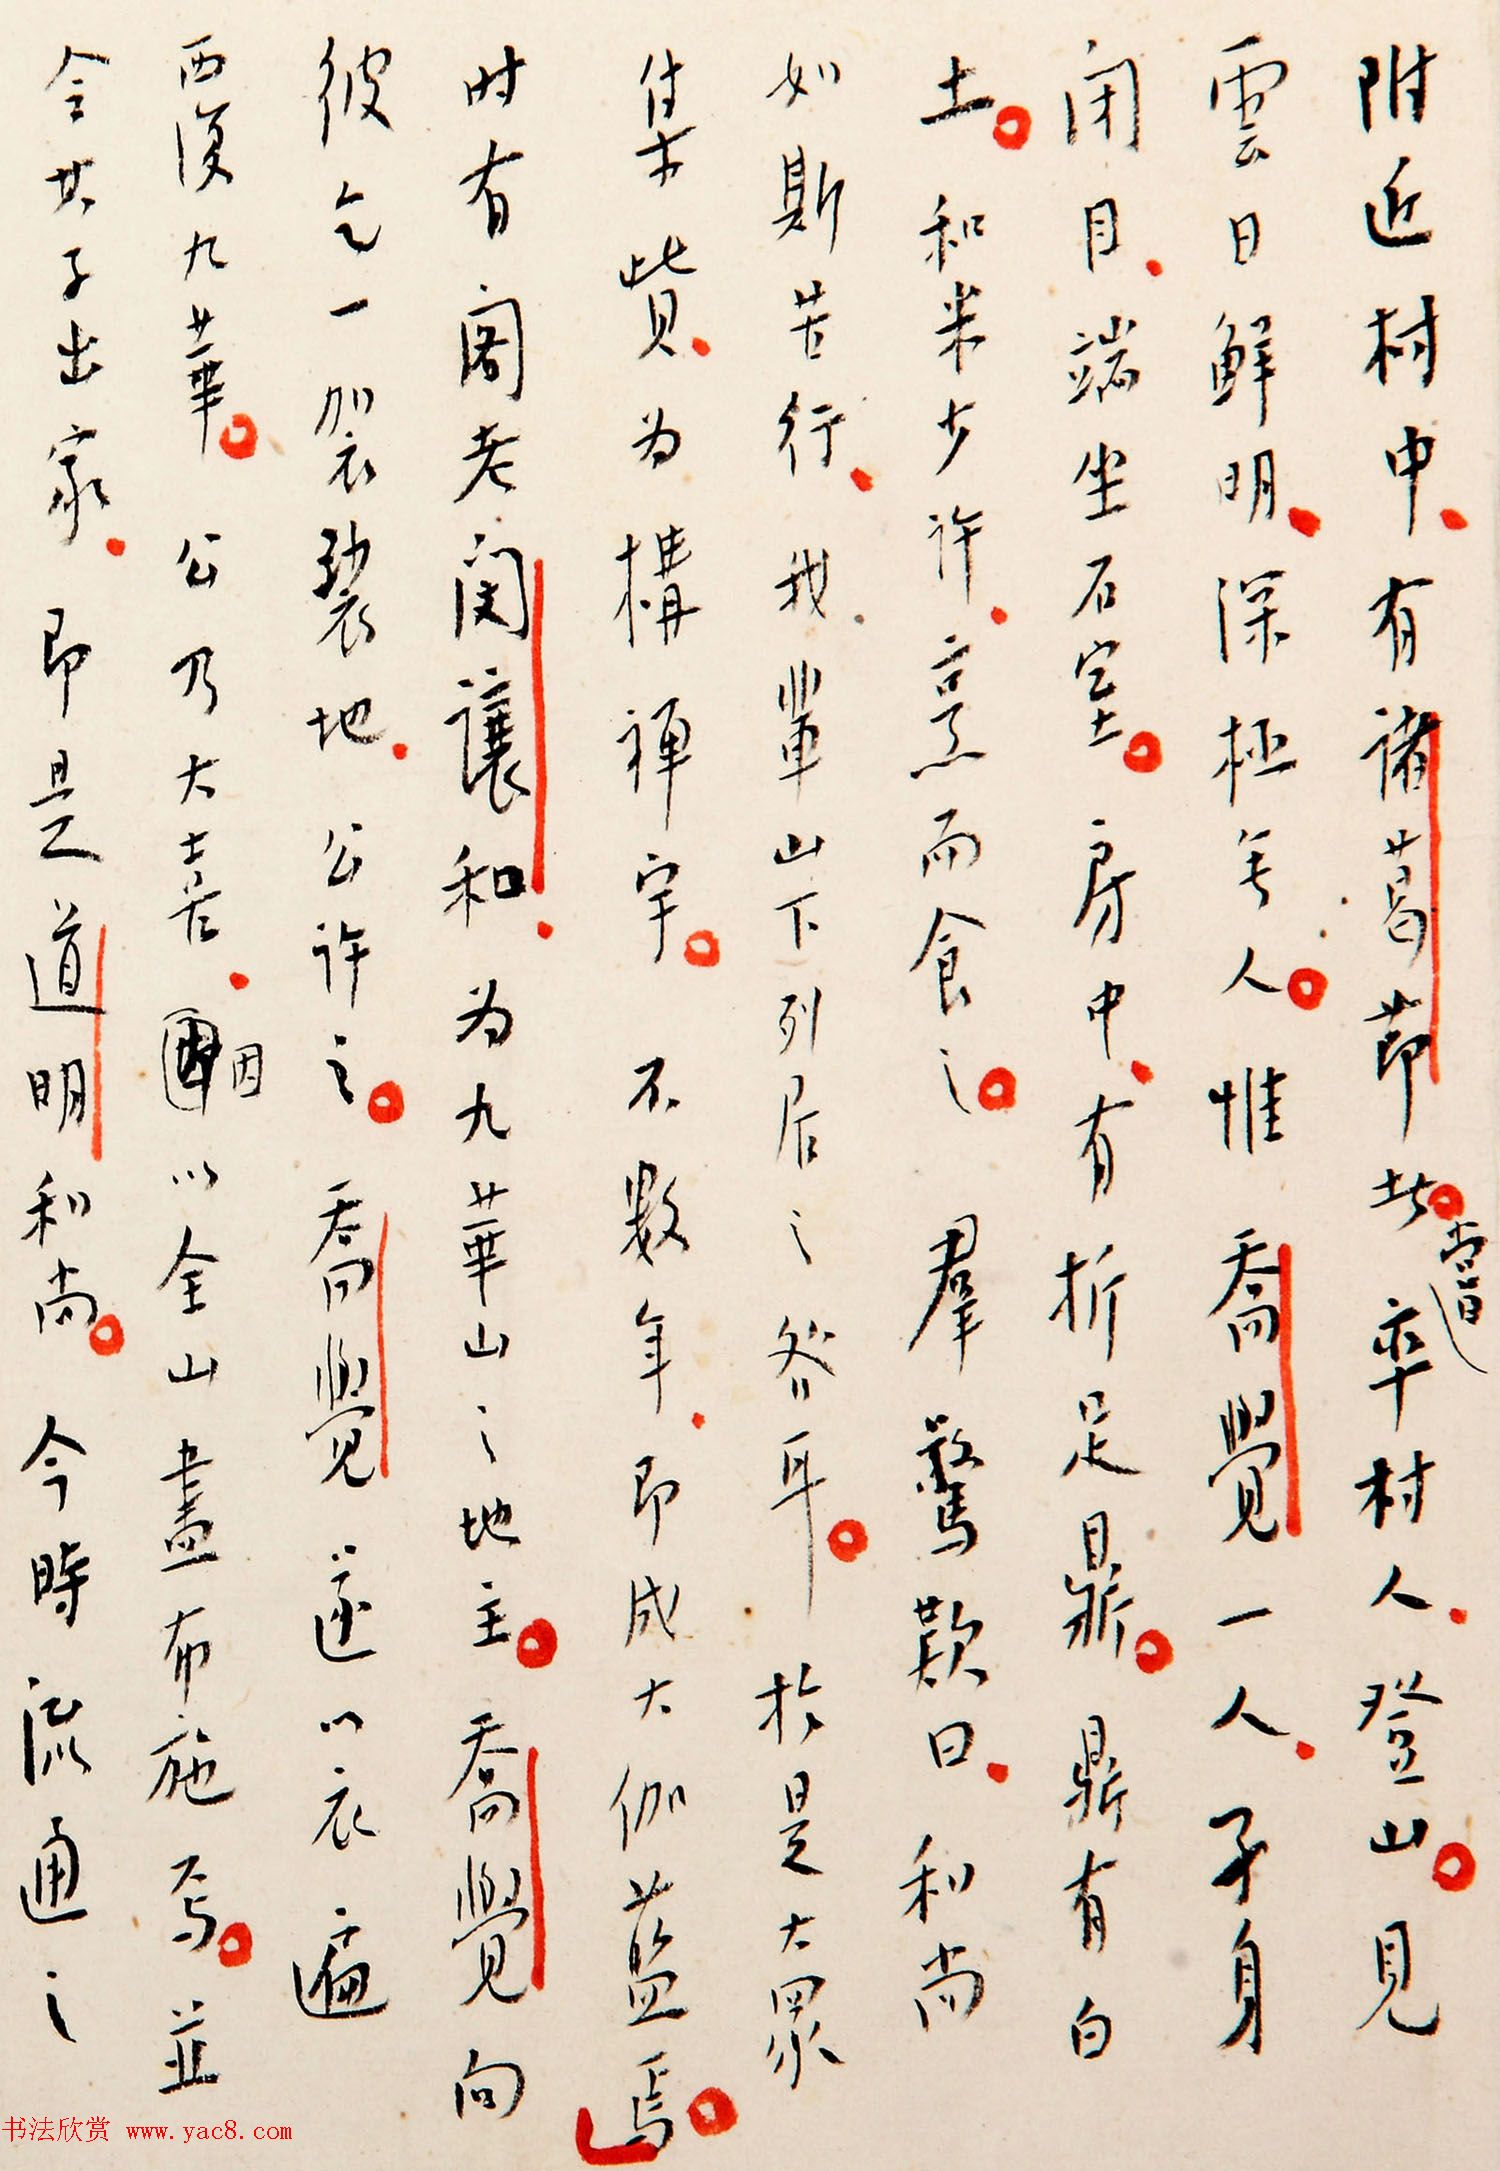 附近村中、有諸葛節者。嘗率村人、登山。見
雲日鮮明、深極無人。惟喬覺一人、孑身
闭目、端坐石室。房中、有折足鼎。鼎有白
土。和米少许、烹而食之。羣驚歎曰、和尚
如斯苦行、我輩山下列居之咎耳。於是大眾
集貲、为構禪宇。不數年、即成大伽藍焉。
时有阁老闵讓和、为九華山之地主。喬覺向
彼乞一袈裟地、公许之。喬覺遂以衣遍
覆九華。公乃大喜、因以全山盡布施焉。並
令其子出家、即是道明和尚。今時流通之
书法欣赏 www.yac8.com